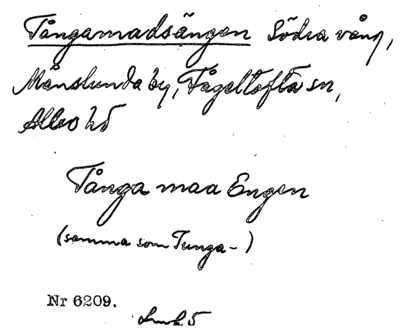 Tångamadsängen Södra vång,
Månslunda by, Fågeltofta sn,
Albo hd
Tånga maa Engen
(samma som Tunga-)
Nr 6209.